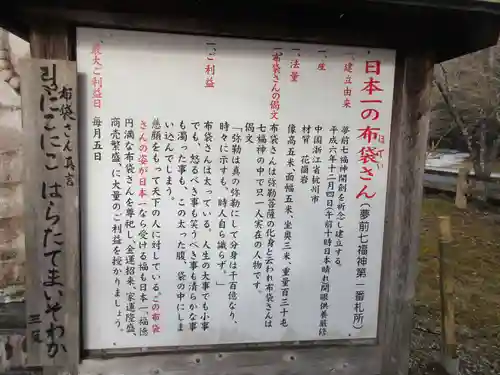 日本一の布袋さん(夢前七福神第一番札所)
ほてい
一、建立由来 夢前七福神開創を祈念し建立する。
平成六年十二月四日(午前十時日本晴れ開眼供養厳修
一、座 中国浙江省杭州市
材質 花崗岩
一、法量 像高五米 面幅五米、坐奥三米、重量百三十屯
一、布袋さんの偈文 布袋さんは弥勒菩薩の化身と云われ布袋さんは
七福神の中で只一人実在の人物です。
偈文
「弥勒は真の弥勒にして分身は千百億なり、
時々に示すも、時人自ら識らず。」
一、ご利益 布袋さんは太っている。人生の大事でも小事
でも、怒るべき事も笑うべき事も清らかな事
も濁った事も、この太った腹、袋の中にしま
い込んでしまう。
慈顔をもって天下の人に対している。この布袋
さんの姿が日本一なら受ける福も日本一、福徳
円満な布袋さんを尊祀し金運招来、家運隆盛、
商売繁盛、に大量のご利益を授かりましょう。
最大ご利益日 毎月五日
布袋さん真言
にこにこ はらたてまいそわか
三反